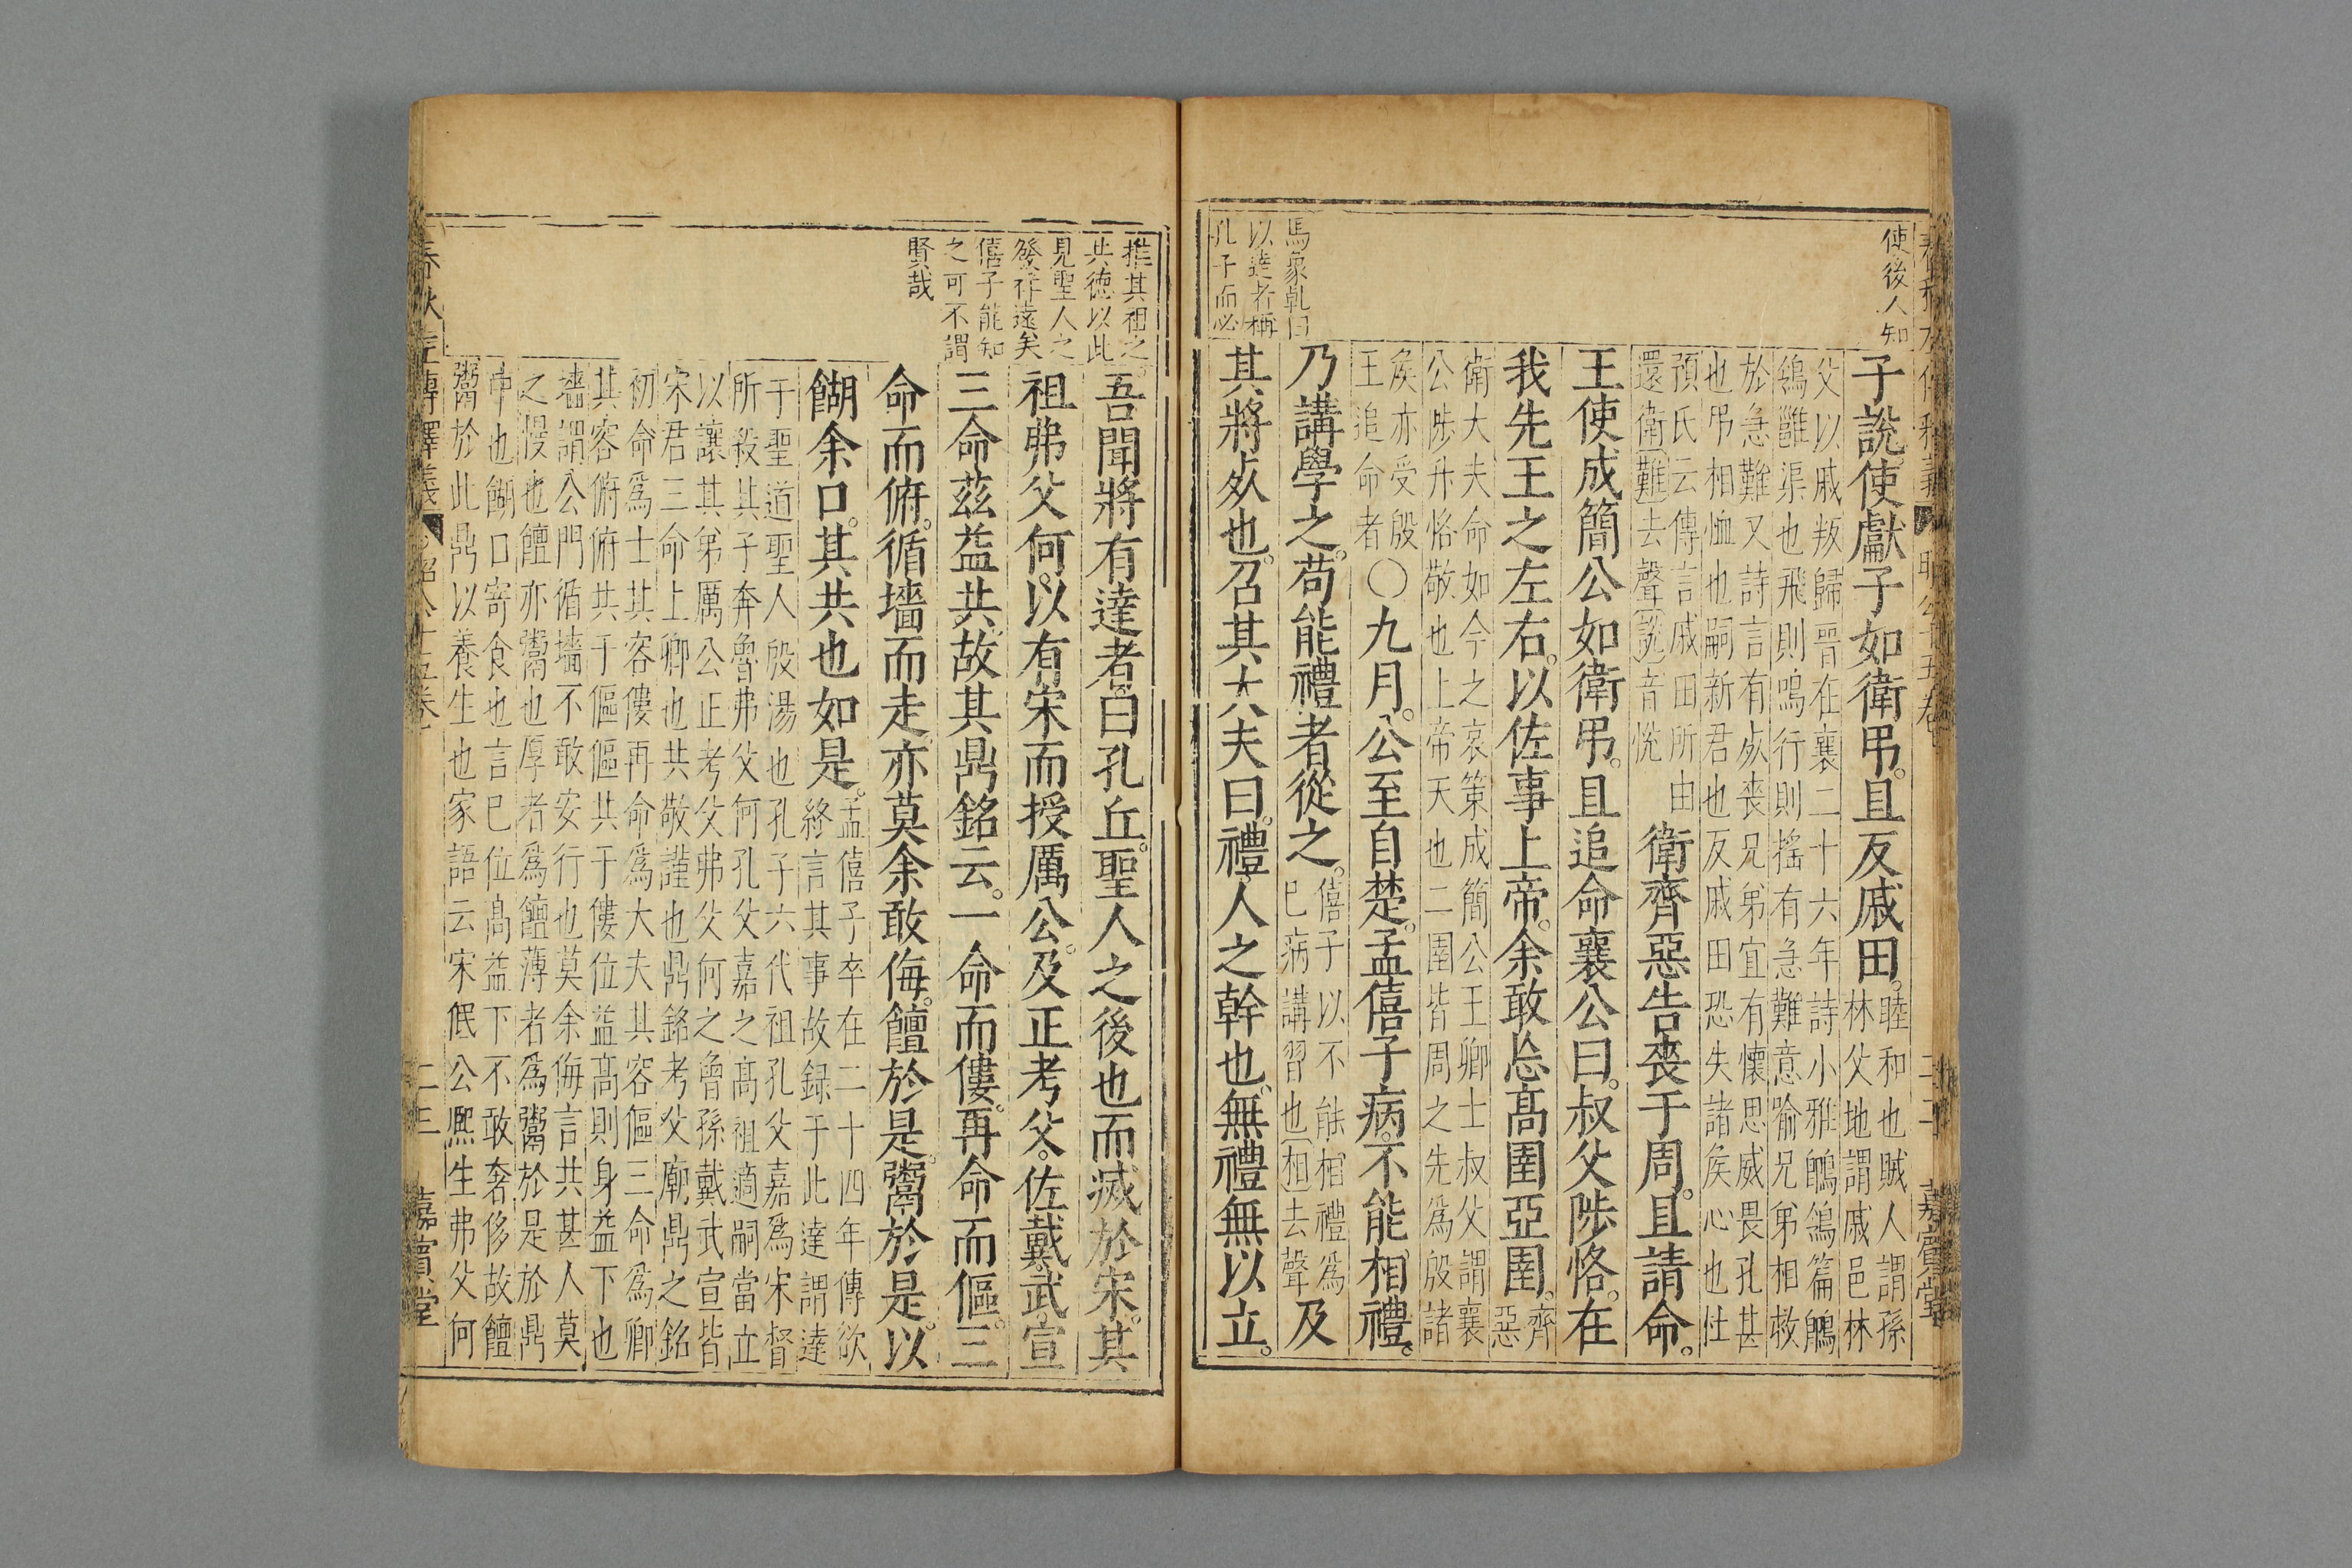 使後人知
子說使獻子如衛弔。且反戚田。睦和也賊人謂孫
林父地謂戚邑林
父以戚叛歸晉在襄二十六年詩小雅鴟鴒篇鴟
鴒雝渠也飛則鳴行則搖有急難意喻兄弟相救
於急難又詩言有死喪兄弟宜有懷思威畏孔甚
也弔相恤也嗣新君也反戚田恐失諸侯心也杜
預氏云傳言戚田所由
還衛難去聲說音悅
衛齊惡告喪于周。且請命。
王使成簡公如衛弔。且追命襄公曰。叔父陟恪。在
我先王之左右。以佐事上帝。余敢忘高圉亞圉。齊
惡
衛大夫命如今之哀策成簡公王卿士叔父謂襄
公陟升恪敬也上帝天也二圉皆周之先為殷諸
侯亦受殷
王追命者
〇九月。公至自楚。孟僖子病。不能相禮。
乃講學之。苟能禮者從之。僖子以不能相禮為
己病講習也相去聲
及
其將死也。召其大夫曰。禮。人之幹也。無禮無以立。
馬象乹曰
以達者稱
孔子而必
推其祖之
共德以此
見聖人之
發祥遠矣
僖子能知
之可不謂
賢哉
吾聞將有達者曰孔丘。聖人之後也而滅於宋。其
祖弗父何。以有宋而授厲公。及正考父。佐戴武宣
三命茲益共。故其鼎銘云。一命而僂。再命而傴。三
命而俯。循墻而走。亦莫余敢侮。饘於是。鬻於是。以
餬余口。其共也如是。孟僖子卒在二十四年傳欲
終言其事故録于此達謂達
于聖道聖人殷湯也孔子六代祖孔父嘉為宋督
所殺其子奔魯弗父何孔父嘉之高祖適嗣當立
以讓其弟厲公正考父弗父何之曾孫戴武宣皆
宋君三命上卿也共敬謹也鼎銘考父廟鼎之銘
初命為士其容僂再命為大夫其容傴三命為卿
其容俯俯共于傴傴共于僂位益高則身益下也
墻謂公門循墻不敢安行也莫余侮言共甚人莫
之慢也饘亦鬻也厚者為饘薄者為鬻於是於鼎
中也餬口寄食也言已位高益下不敢奢侈故饘
鬻於此鼎以養生也家語云宋泯公熈生弗父何
二三
嘉賓堂